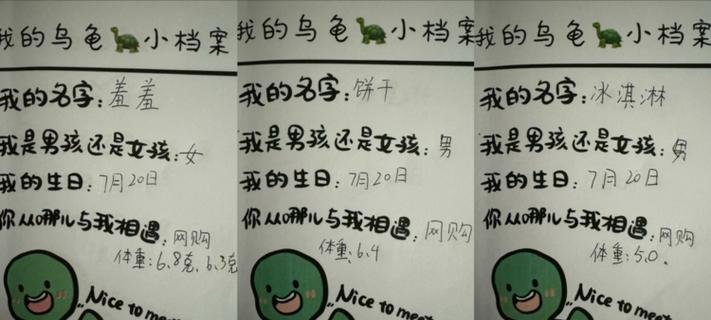 我的乌龟🐢小档案
我的名字：羞羞
我是男孩还是女孩：女
我的生日：7月20日
你从哪儿与我相遇：网购
体重：6.8克，6.3克
Nice to meet
我的乌龟🐢小档案
我的名字：饼干
我是男孩还是女孩：男
我的生日：7月20日
你从哪儿与我相遇：网购
体重：6.4
Nice to meet
我的乌龟🐢小档案
我的名字：冰淇淋
我是男孩还是女孩：男
我的生日：7月20日
你从哪儿与我相遇：网购
体重：5.0.
Nice to meet